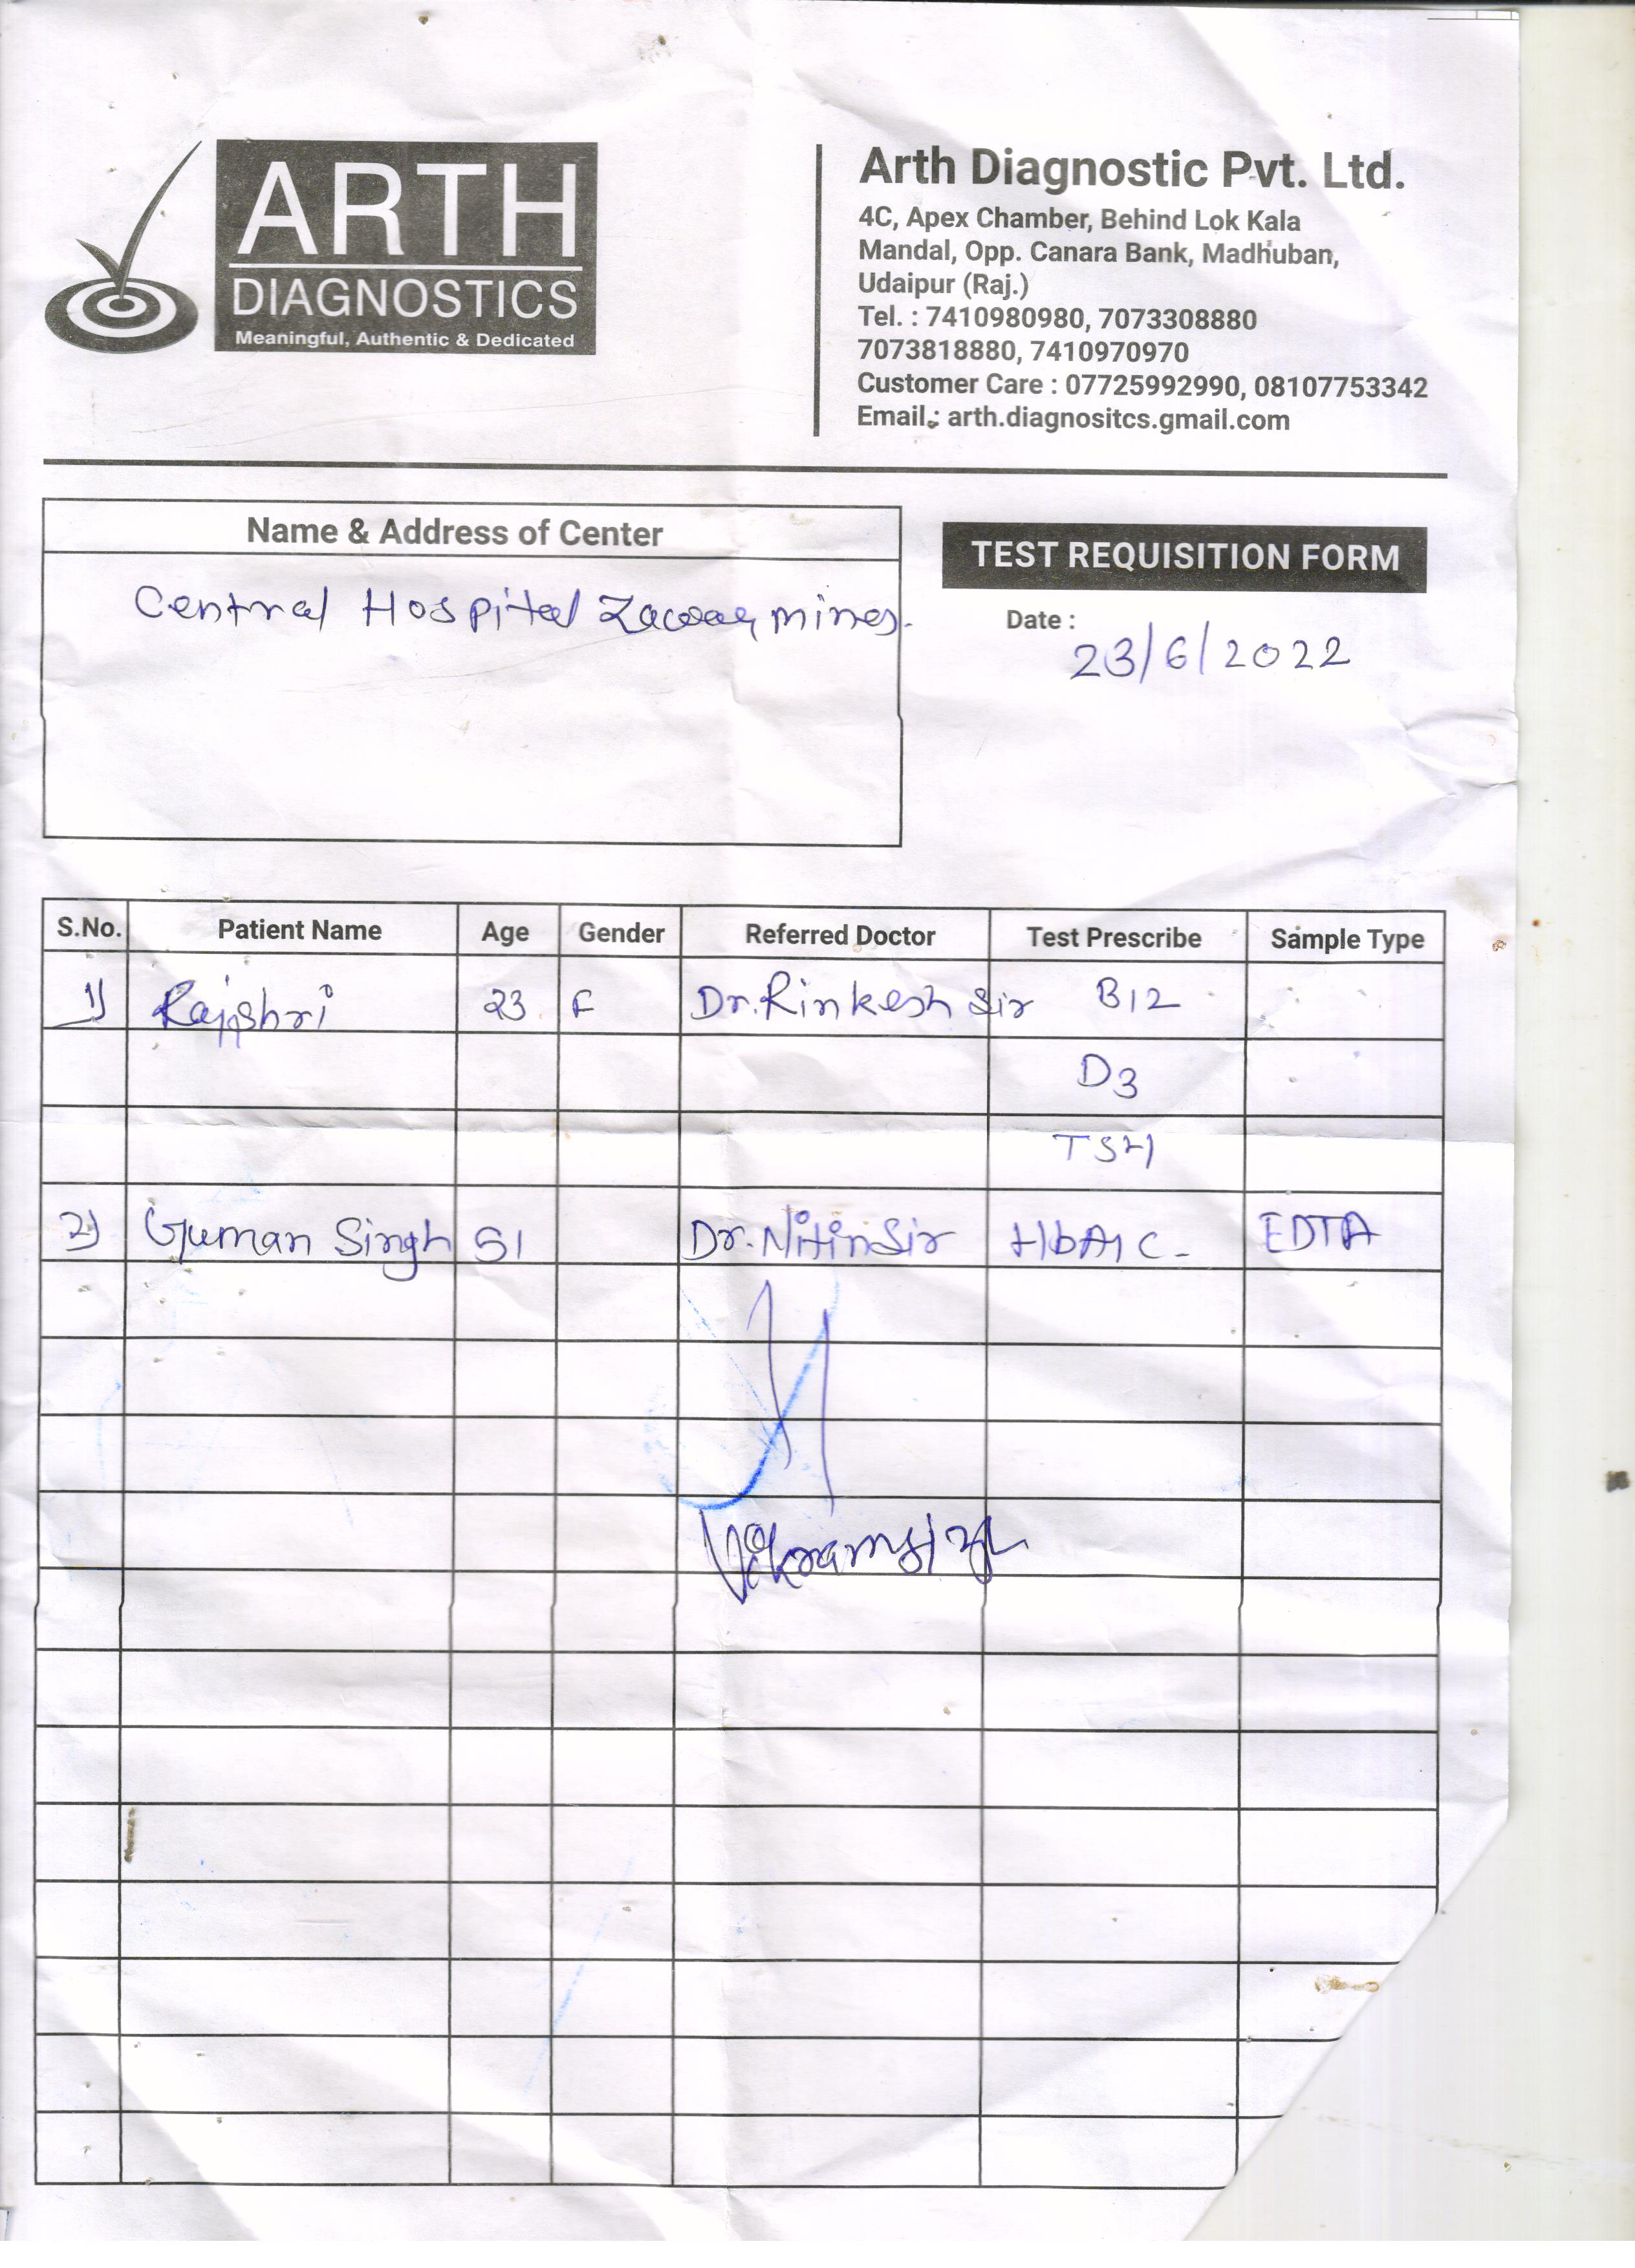 ARTH
DIAGNOSTICS
Meaningful, Authentic & Dedicated
Arth Diagnostic Pvt. Ltd.
4C, Apex Chamber, Behind Lok Kala
Mandal, Opp. Canara Bank, Madhuban,
Udaipur (Raj.)
Tel. : 7410980980, 7073308880
7073818880, 7410970970
Customer Care : 07725992990, 08107753342
Email : arth.diagnositcs.gmail.com
Name & Address of Center
Central Hospital Zawar mines.
TEST REQUISITION FORM
Date :
23/6/2022
S.No. Patient Name Age Gender Referred Doctor Test Prescribe Sample Type
1) Rajshri 23 F Dr. Rinkesh Sir B12
D3
TSH
2) Guman Singh 51 Dr. Nitin Sir HbA1C - EDTA